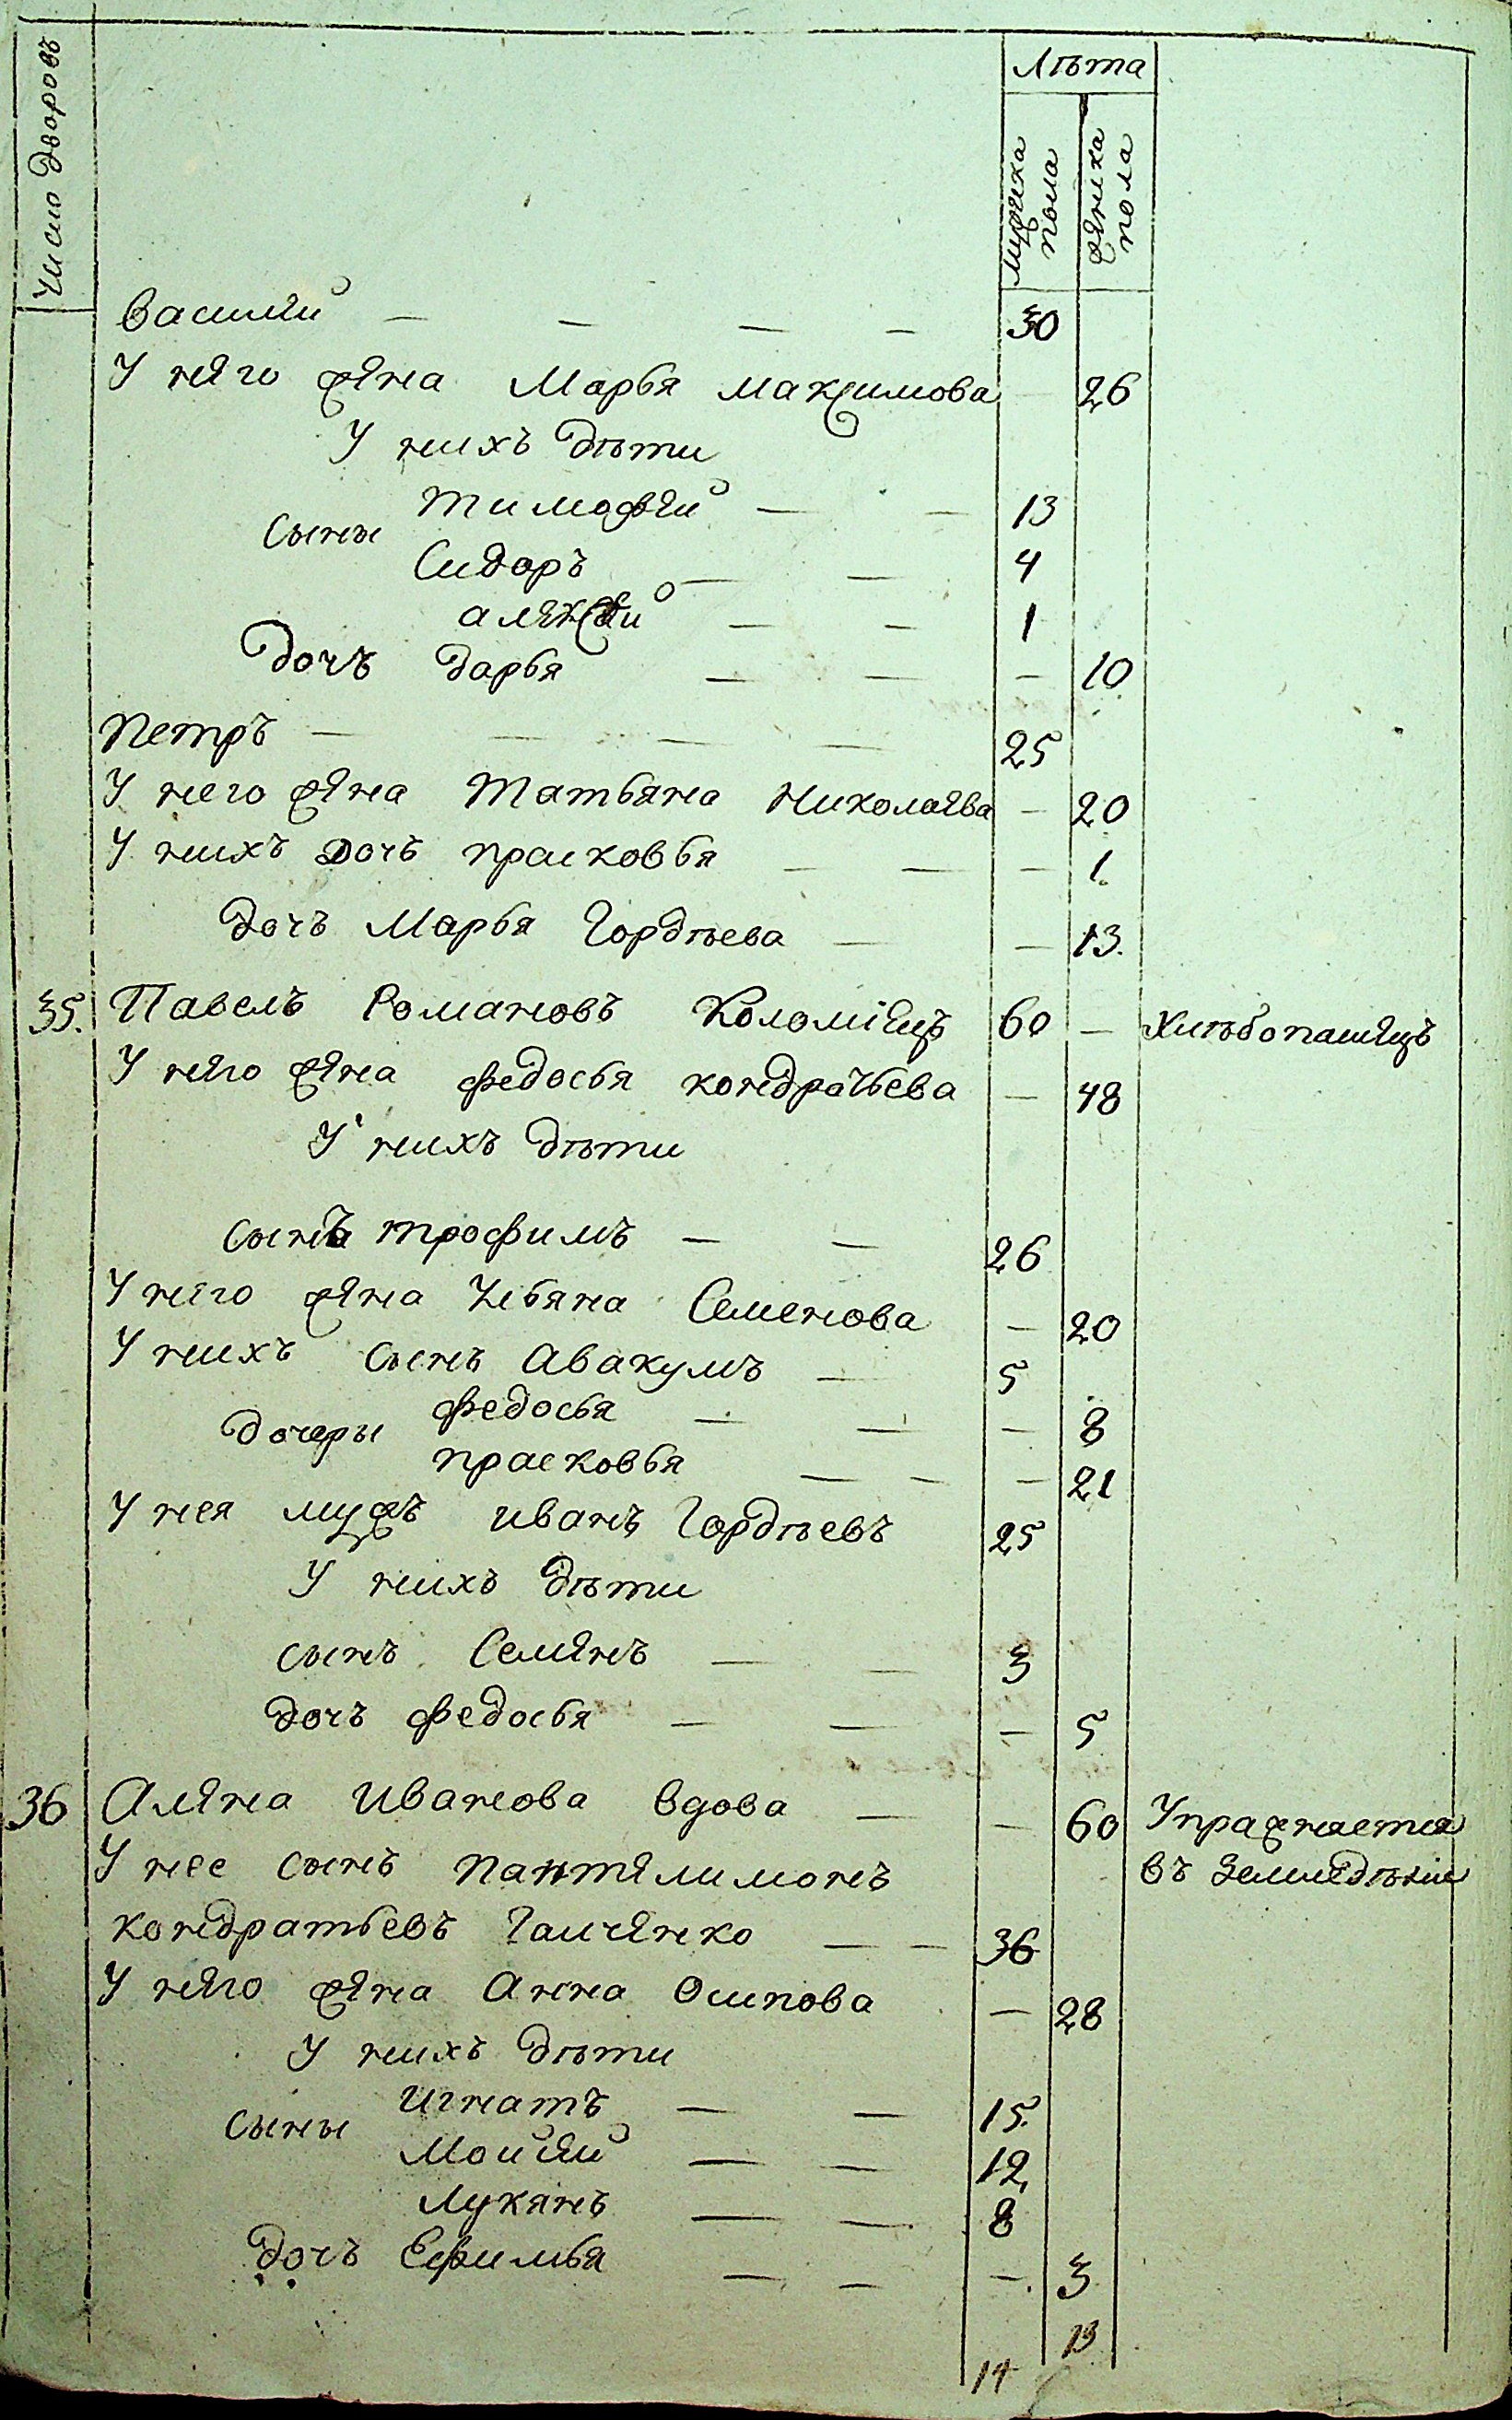 Число дворовъ
Лѣта
мужеска пола
женска пола
Василій — — — — 30
У него жена Марья Максимова — 26
У нихъ дѣти
сыны Тимофей — — 13
Сидоръ — — 4
Алексѣй — — 1
дочъ Дарья — — — 10
Петръ — — — — 25
У него жена Татьяна Николаева — 20
У нихъ дочъ Прасковья — — — 1.
дочъ Марья Гордѣева — — 13.
35. Павелъ Романовъ Коломіецъ 60 — Хлѣбопашецъ
У него жена Федосья Кондратьева — 48
У нихъ дѣти
сынъ Трофимъ — — 26
У него жена Ульяна Семенова — 20
У нихъ сынъ Авакумъ — 5
дочеры Федосья — — — 8
Прасковья — — — 21
У нея мужъ Иванъ Гордѣевъ 25
У нихъ дѣти
сынъ Семенъ — — 3
дочъ Федосья — — — 5
36 Алена Иванова вдова — — 60 Упражняется
У нее сынъ Пантялимонъ въ Земледѣліи
Кондратьевъ Галченко — — 36
У него жена Анна Осипова — 28
У нихъ дѣти
сыны Игнатъ — — 15.
Мойсей — — 12
Лукянъ — — 8
дочъ Ефимья — — — 3
13
14